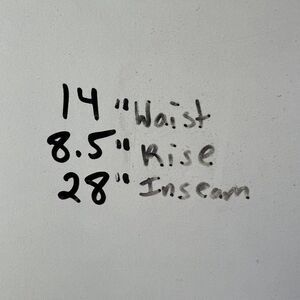 14" Waist
8.5" Rise
28" Inseam